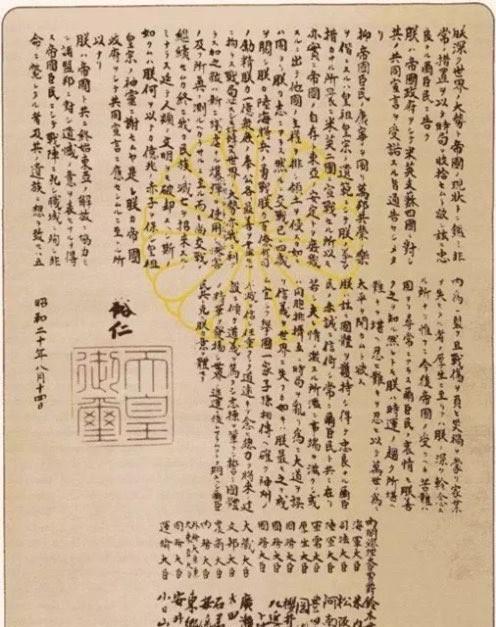 朕深ク世界ノ大勢ト帝國ノ現狀トニ鑑ミ非
常ノ措置ヲ以テ時局ヲ收拾セムト欲シ茲ニ忠
良ナル爾臣民ニ告ク
朕ハ帝國政府ヲシテ米英支蘇四國ニ對シ
其ノ共同宣言ヲ受諾スル旨通告セシメタ
リ
抑帝國臣民ノ康寧ヲ圖リ萬邦共榮ノ樂
ヲ偕ニスルハ皇祖皇宗ノ遺範ニシテ朕ノ拳々
措カサル所曩ニ米英二國ニ宣戰セル所以モ
亦實ニ帝國ノ自存ト東亞ノ安定トヲ庶幾
スルニ出テ他國ノ主權ヲ排シ領土ヲ侵スカ如
キハ固ヨリ朕カ志ニアラス然ルニ交戰已ニ四歳
ヲ閲シ朕カ陸海將兵ノ勇戰朕カ百僚有司
ノ勵精朕カ一億衆庶ノ奉公各最善ヲ盡セルニ
拘ラス戰局必スシモ好轉セス世界ノ大勢亦我ニ利
アラス加之敵ハ新ニ殘虐ナル爆彈ヲ使用シテ慘害
ノ及フ所眞ニ測ルヘカラサルニ至ル而モ尚交戰ヲ
繼續セムカ終ニ我カ民族ノ滅亡ヲ招來スルノミ
ナラス延テ人類ノ文明ヲモ破却スヘシ斯ノ
如クムハ朕何ヲ以テカ億兆ノ赤子ヲ保シ皇祖
皇宗ノ神靈ニ謝セムヤ是レ朕カ帝國
政府ヲシテ共同宣言ニ應セシムルニ至レル所
以ナリ
朕ハ帝國ト共ニ終始東亞ノ解放ニ協力セ
ル諸盟邦ニ對シ遺憾ノ意ヲ表セサルヲ得
ス帝國臣民ニシテ戰陣ニ死シ職域ニ殉シ非
命ニ斃レタル者及其ノ遺族ニ想ヲ致セハ五
内爲ニ裂ク且戰傷ヲ負ヒ災禍ヲ蒙リ家業
ヲ失ヒタル者ノ厚生ニ至リテハ朕ノ深ク軫念スル
所ナリ惟フニ今後帝國ノ受クヘキ苦難ハ
固ヨリ尋常ニアラス爾臣民ノ衷情モ朕善
ク之ヲ知ル然レトモ朕ハ時運ノ趨ク所堪ヘ
難キヲ堪ヘ忍ヒ難キヲ忍ヒ以テ萬世ノ爲ニ
太平ヲ開カムト欲ス
朕ハ茲ニ國體ヲ護持シ得テ忠良ナル爾臣
民ノ赤誠ニ信倚シ常ニ爾臣民ト共ニ在リ
若シ夫レ情ノ激スル所濫ニ事端ヲ滋クシ或
ハ同胞排擠互ニ時局ヲ亂リ爲ニ大道ヲ誤
リ信義ヲ世界ニ失フカ如キハ朕最モ之ヲ戒ム
宜シク擧國一家子孫相傳ヘ確ク神州ノ
不滅ヲ信シ任重クシテ道遠キヲ念ヒ總力ヲ將來ノ建
設ニ傾ケ道義ヲ篤クシ志操ヲ鞏クシ誓テ國體
ノ精華ヲ發揚シ世界ノ進運ニ後レサラムコトヲ期スヘシ爾臣
民其レ克ク朕カ意ヲ體セヨ
裕仁
天皇
御璽
昭和二十年八月十四日
内閣總理大臣男爵鈴木
海軍大臣 米内
司法大臣 松阪
陸軍大臣 阿南
軍需大臣 豊田
厚生大臣 岡
國務大臣 櫻井
國務大臣
國務大臣
大藏大臣 廣瀬
文部大臣 太田
農商大臣 石黒
内務大臣
外務大臣 東郷
國務大臣 安井
運輸大臣 小日山